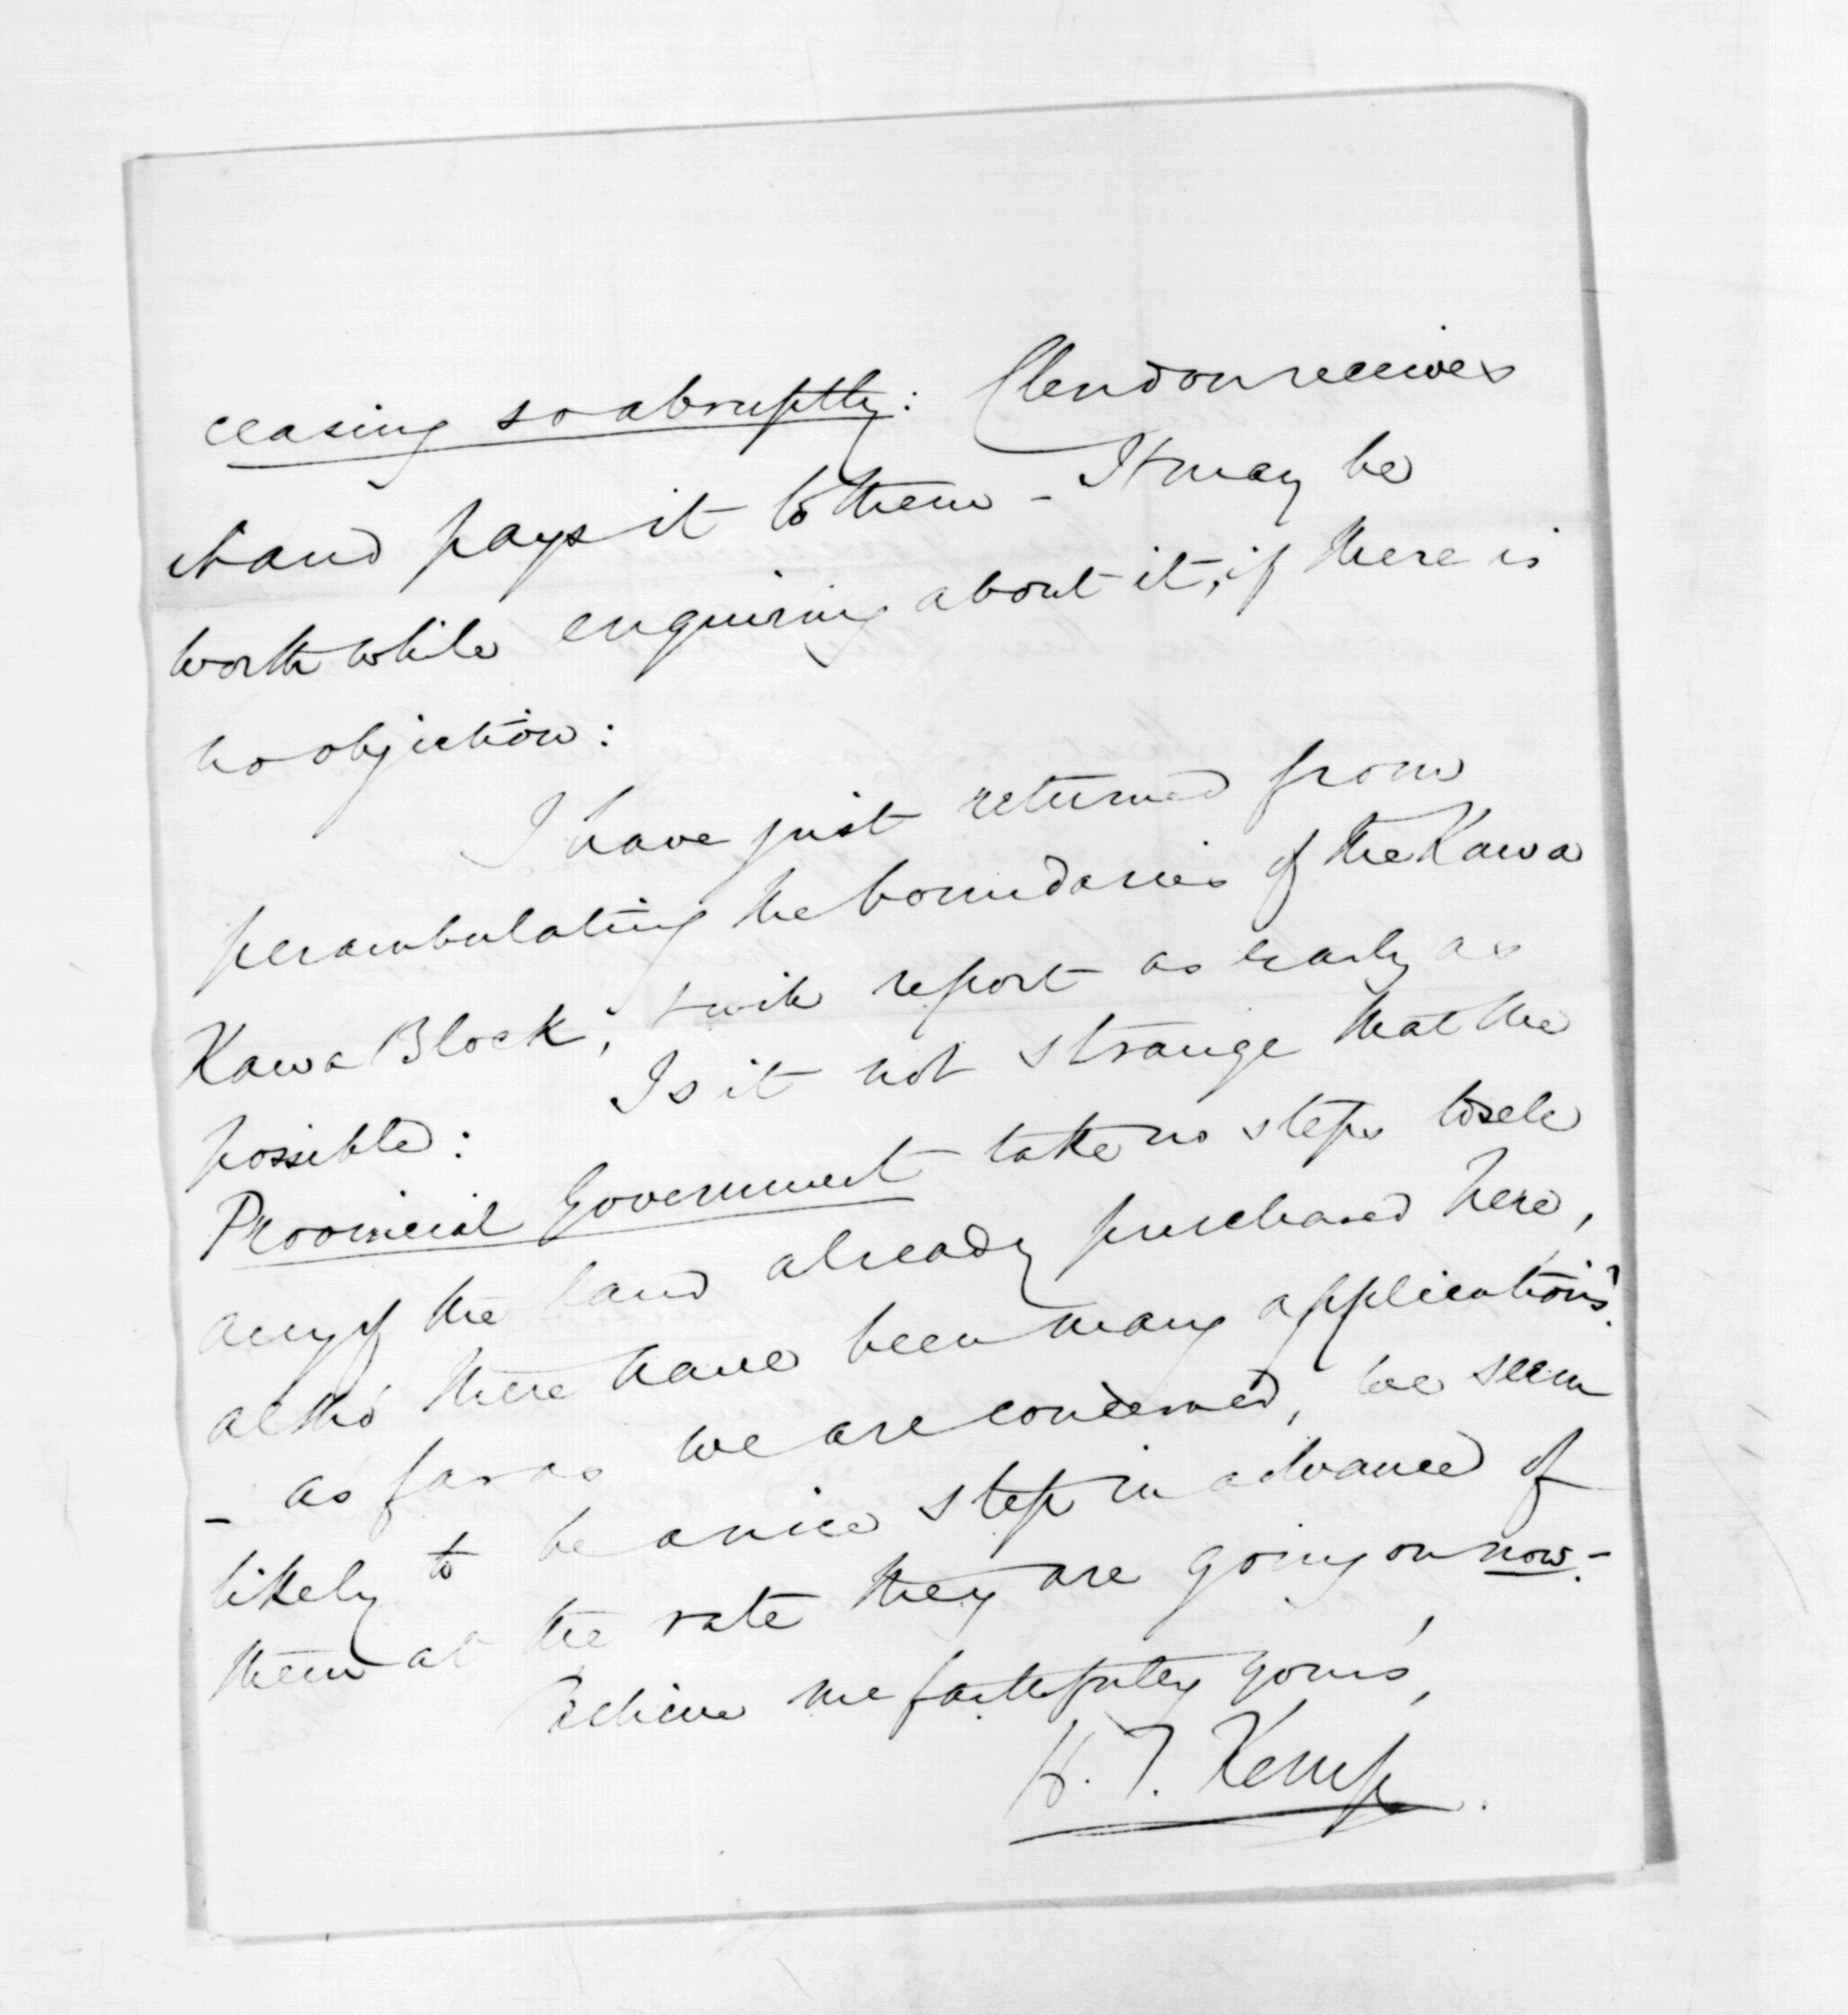 ceasing so abruptly: Clendon receives
it and pays it to them - It may be
worth while enquiring about it, if there is
no objection:
I have just returned from
perambulating the boundaries of the Kawa
Kawa Block, & will report as early as
possible: Is it not strange that the
Provincial Government take no steps to sell
any of the land already purchased here,
altho' there have been many applications?
- as far as we are concerned, we seem
likely to be a nice step in advance of
them at the rate they are going on now. -
Believe me faithfully yours,
H. T. Kemp.